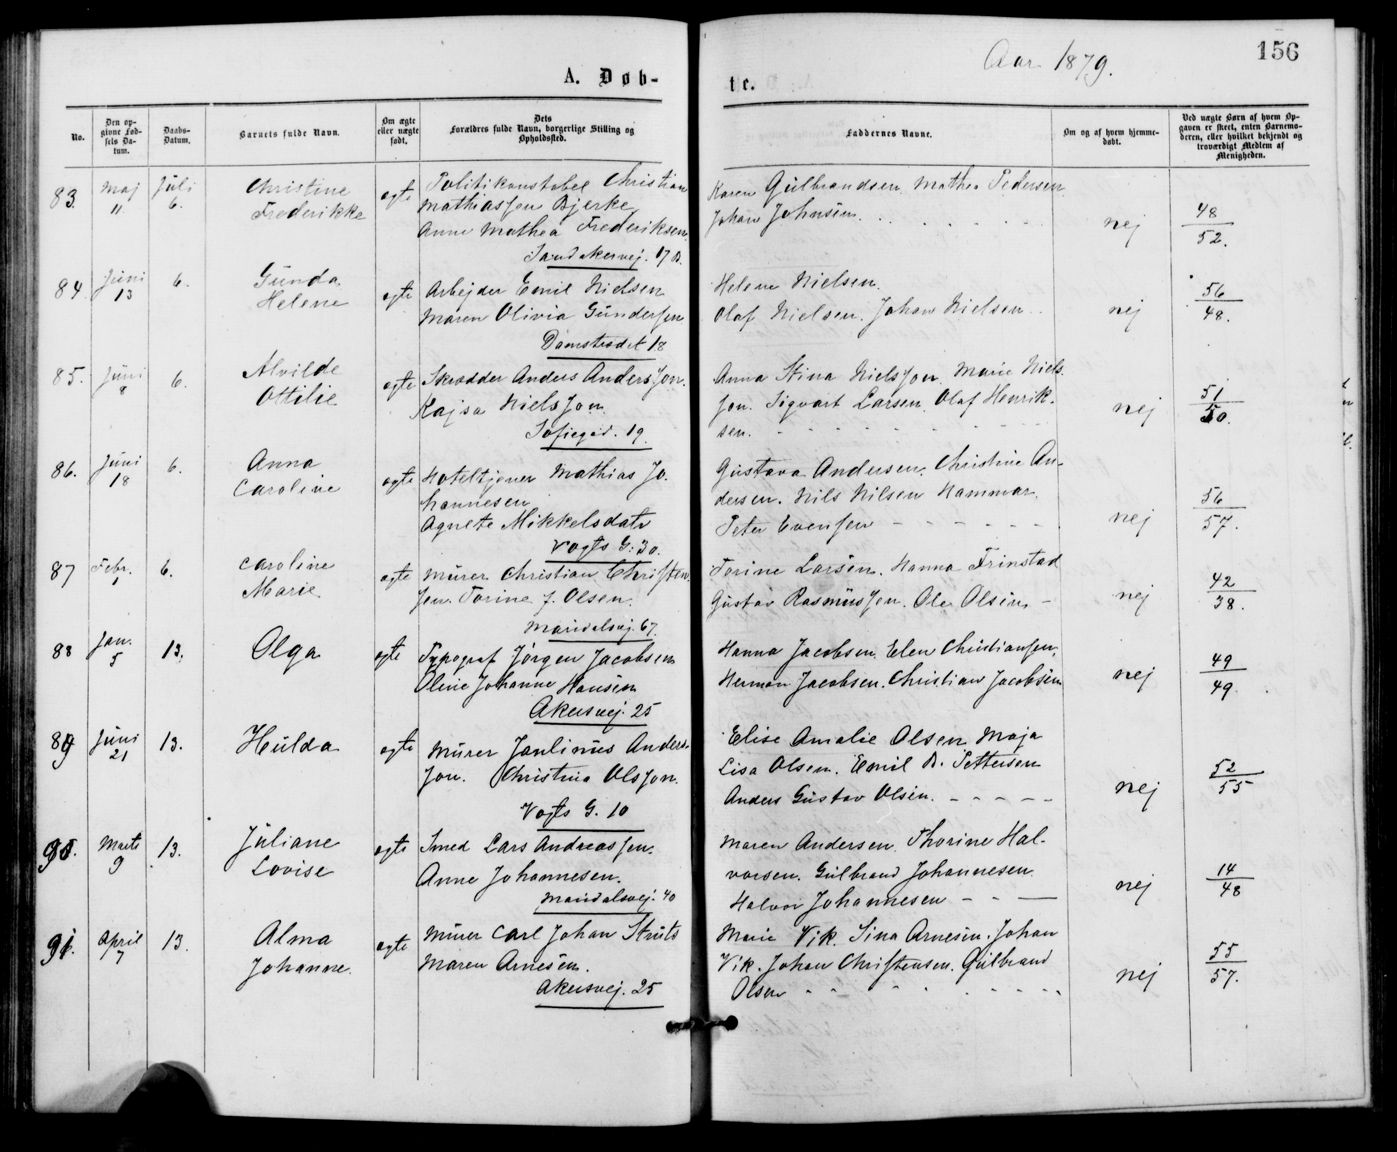 156
Aar 1879.
A. Døb-
te.
No.
Den op-
givne Fød-
sels Da-
tum.
Daabs-
Datum.
Barnets fulde Navn.
Om ægte
eller uægte
født.
Dets
Forældres fulde Navn, borgerlige Stilling og
Opholdssted.
Faddernes Navne.
Om og af hvem hjemme-
døbt.
Ved uægte Børn af hvem Op-
gaven er skeet, enten Barnemo-
deren, eller hvilket bekjendt og
troværdigt Medlem af
Menigheden.
83. Maj 11 Juli 6. Christine Frederikke ægte
Politikonstabel Christian
Mathiassen Bjerke
Anne Mathea Frederiksen
Sandakervej. 17 B.
Karen Gulbrandsen. Mathea Pedersen
Johan Johnsen
nej 48/52.
84. Juni 13 6. Gunda Helene ægte
Arbejder Emil Nielsen
Maren Olivia Gundersen
Damstrædet 18
Helene Nielsen.
Olaf Nielsen. Johan Nielsen
nej 56/48.
85. Juni 8 6. Alvilde Ottilie ægte
Skrædder Anders Andersson.
Kajsa Nielsson
Sofiegd. 19.
Anna Stina Nielsson. Marie Niels
son. Sigvart Larsen. Olaf Henrik-
sen.
nej 51/50.
86. Juni 18 6. Anna Caroline ægte
Hoteltjener Mathias Jo-
hannesen
Agnete Mikkelsdatr
Vogts G. 30.
Gustava Andersen. Christine An-
dersen. Nils Nilsen Hammar.
Peter Evensen
nej 56/57.
87 Febr. 1 6. Caroline Marie ægte
Murer Christian Christen
sen. Torine f. Olsen.
Maridalsvej. 67.
Torine Larsen. Hanna Frinstad
Gustav Rasmussen. Ole Olsen
nej 42/38.
88 Jan. 5 13. Olga ægte
Typograf Jørgen Jacobsen
Oline Johanne Hansen
Akersvej. 25
Hanna Jacobsen. Elen Christiansen.
Herman Jacobsen. Christian Jacobsen
nej 49/49.
89 Juni 21 13. Hulda ægte
Murer Janlinus Anders-
son. Christina Olsson.
Vogts G. 10
Elise Amalie Olsen Maja
Lisa Olsen. Emil B. Pettersen
Anders Gustav Olsen.
nej 52/55
90. Marts 9 13. Juliane Lovise ægte
Smed Lars Andreassen.
Anne Johannesen.
Maridalsvej. 40
Maren Andersen. Thorine Hal-
vorsen. Gulbrand Johannesen
Halvor Johannesen
nej 14/48
91. April 7 13. Alma Johanne ægte
Murer Carl Johan Struts
Maren Arnesen.
Akersvej. 25
Marie Vik. Sina Arnesen. Johan
Vik. Johan Christensen. Gulbrand
Olsen
nej 55/57.